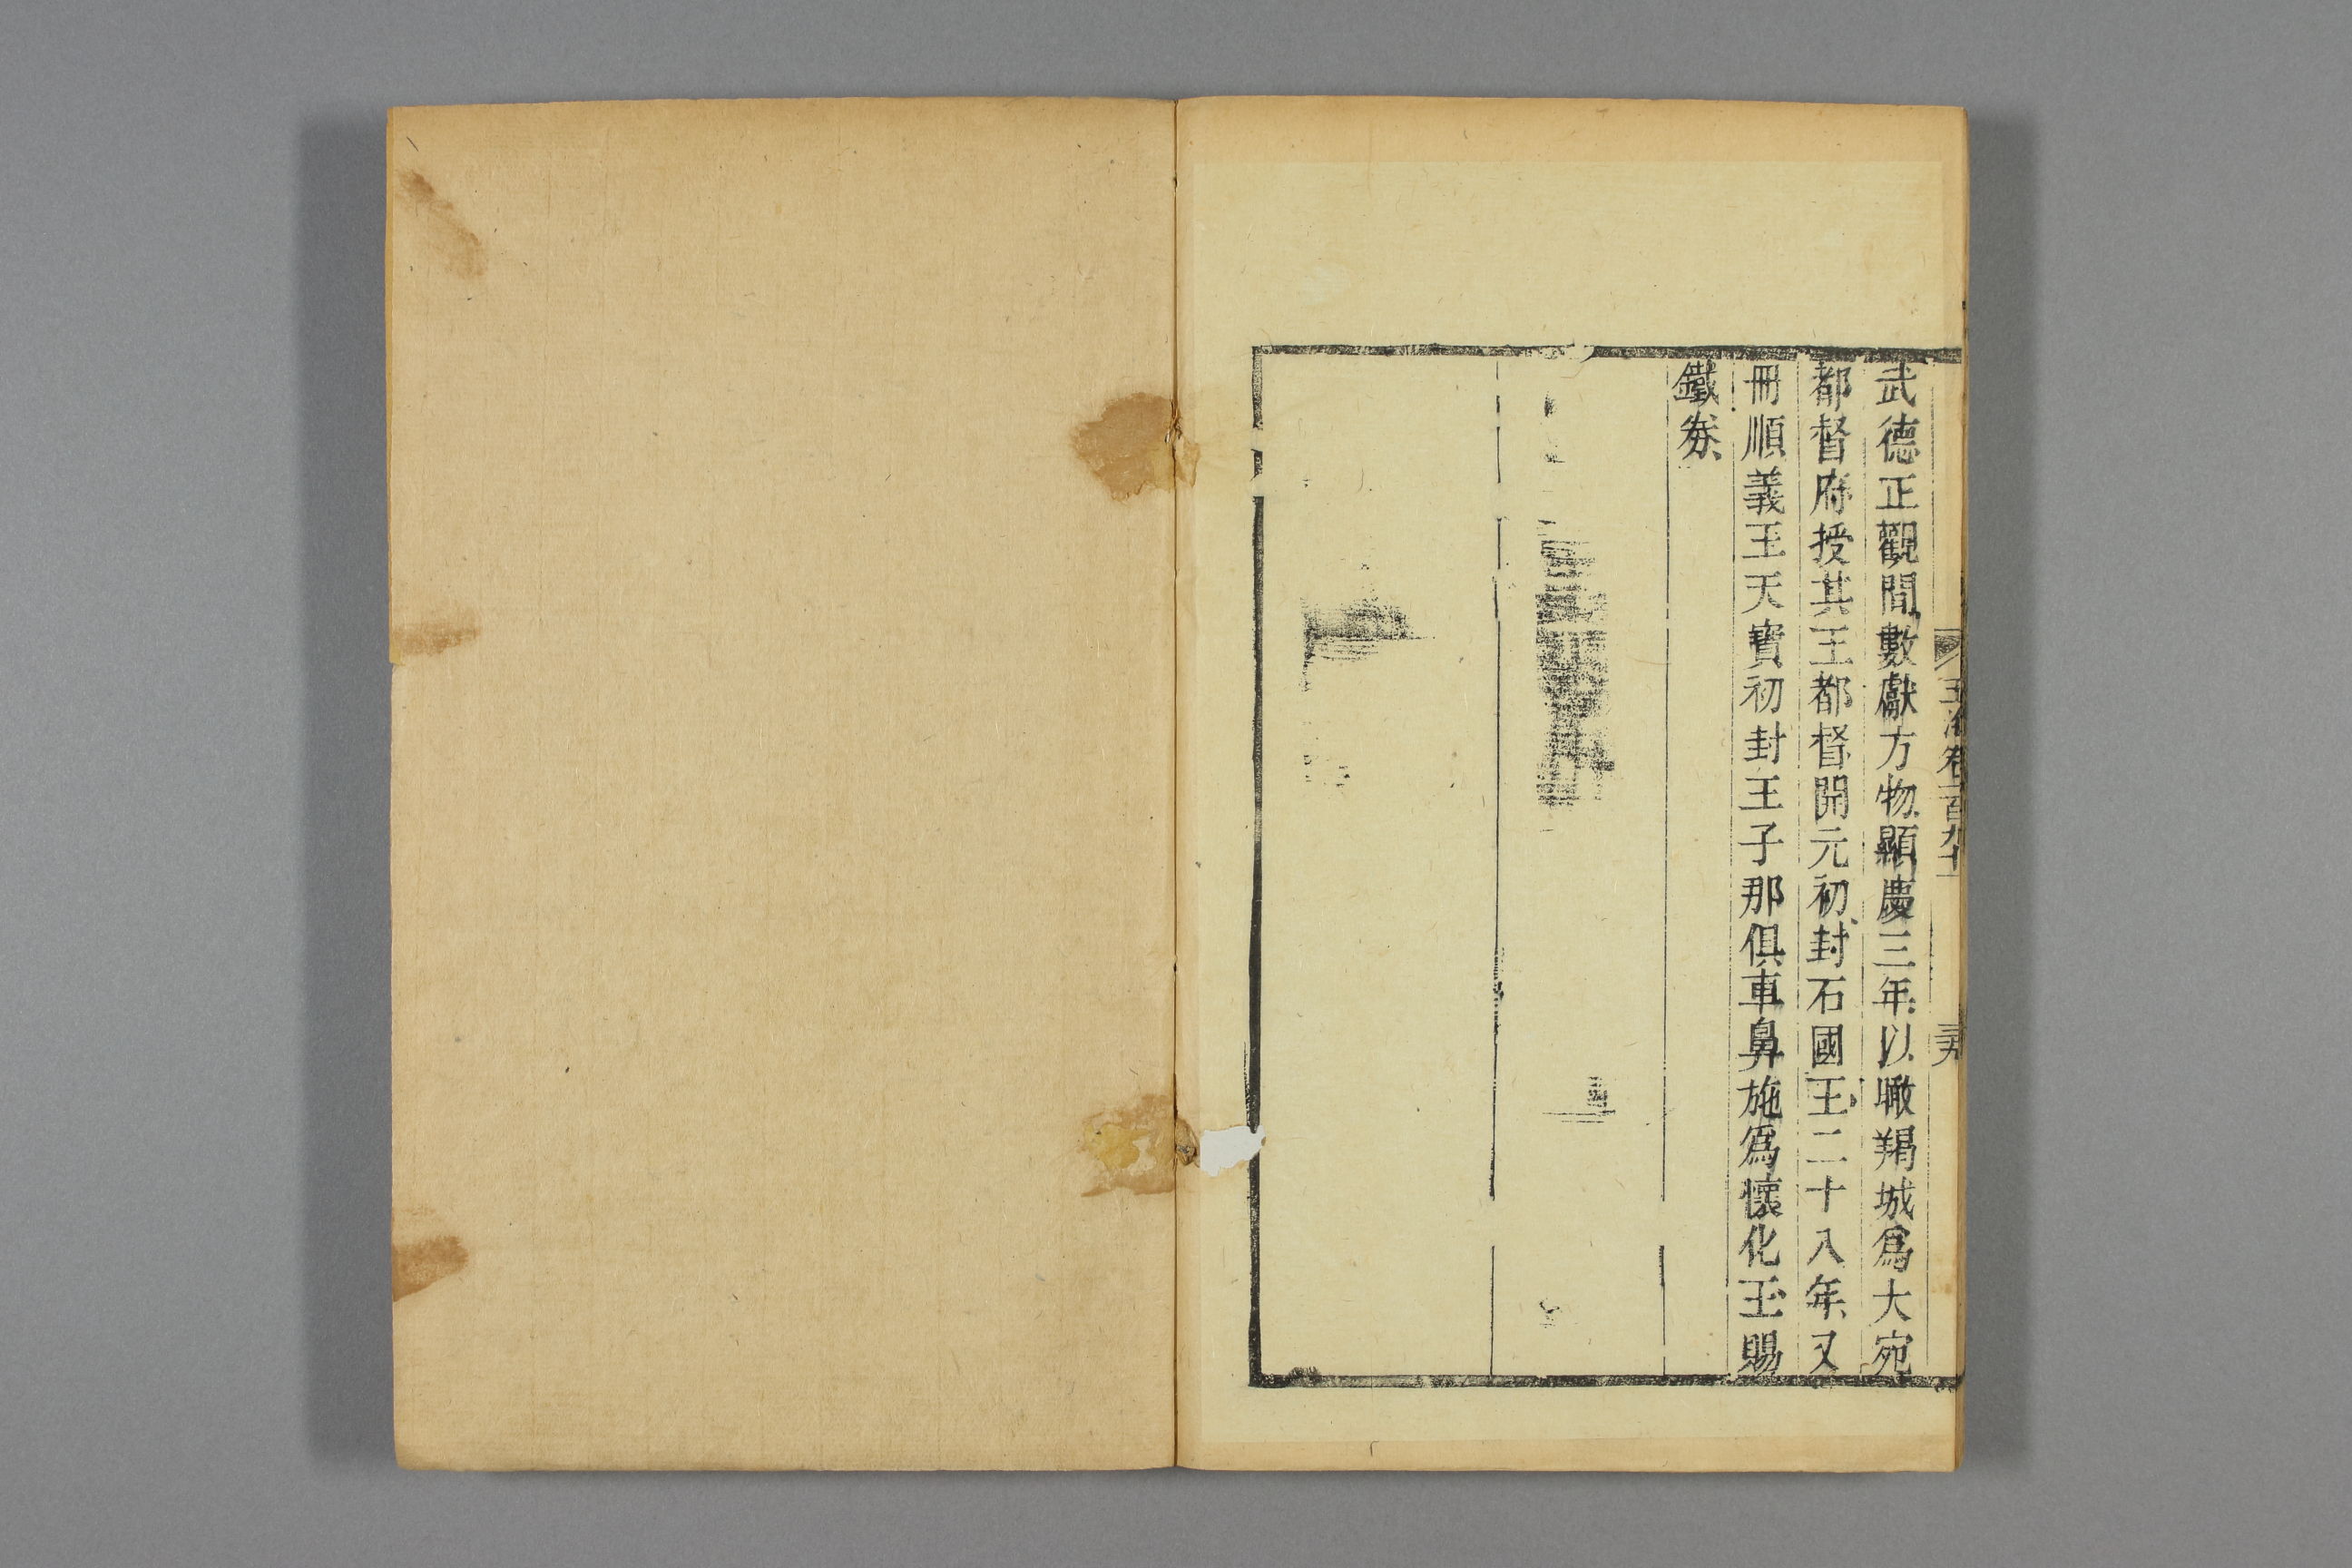 武德正觀間數獻方物顯慶三年以瞰羯城爲大宛
都督府授其王都督開元初封石國王二十八年又
冊順義王天寶初封王子那俱車鼻施爲懷化王賜
鐵券
玉海卷一百九十一